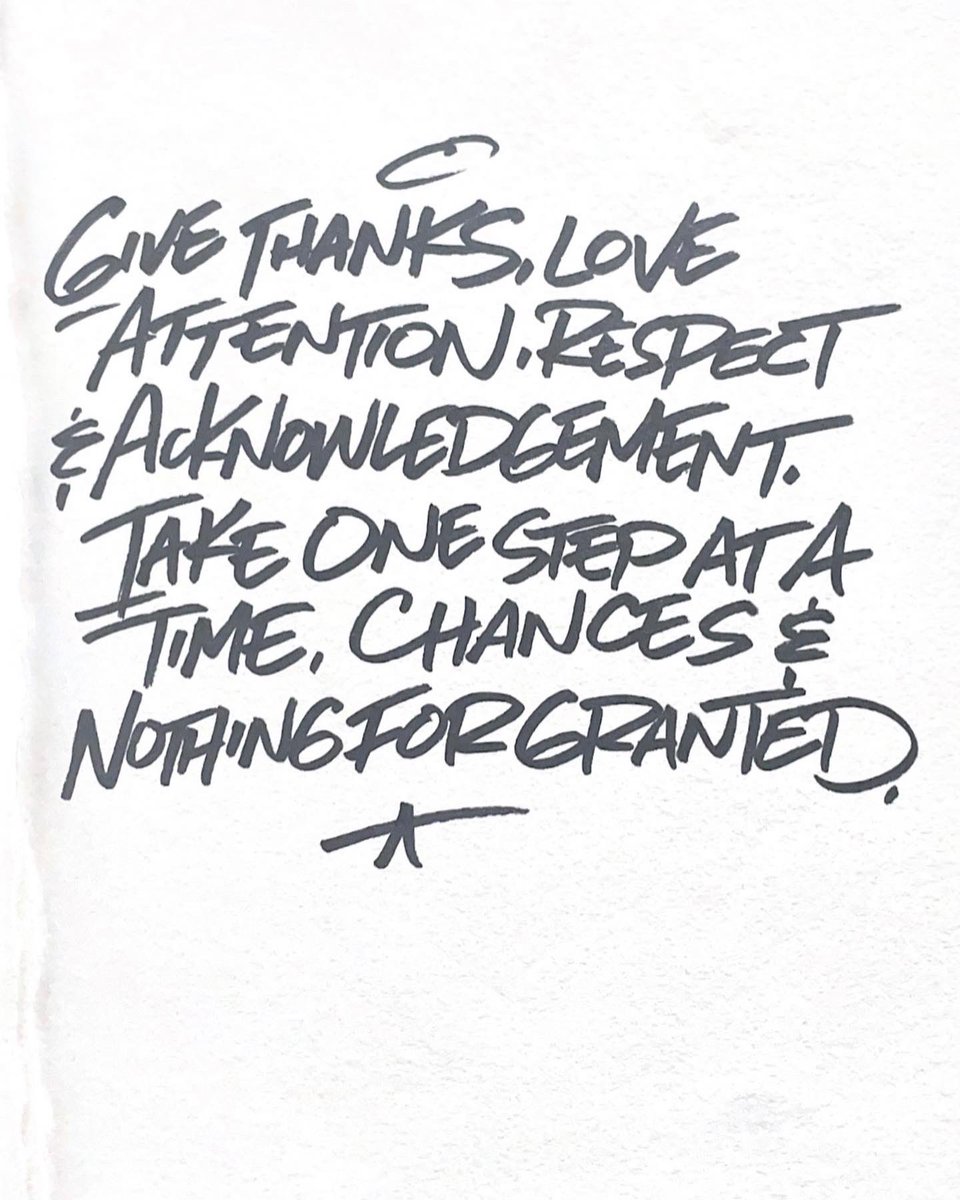 GIVE THANKS, LOVE
ATTENTION, RESPECT
& ACKNOWLEDGEMENT.
TAKE ONE STEP AT A
TIME, CHANCES &
NOTHING FOR GRANTED.